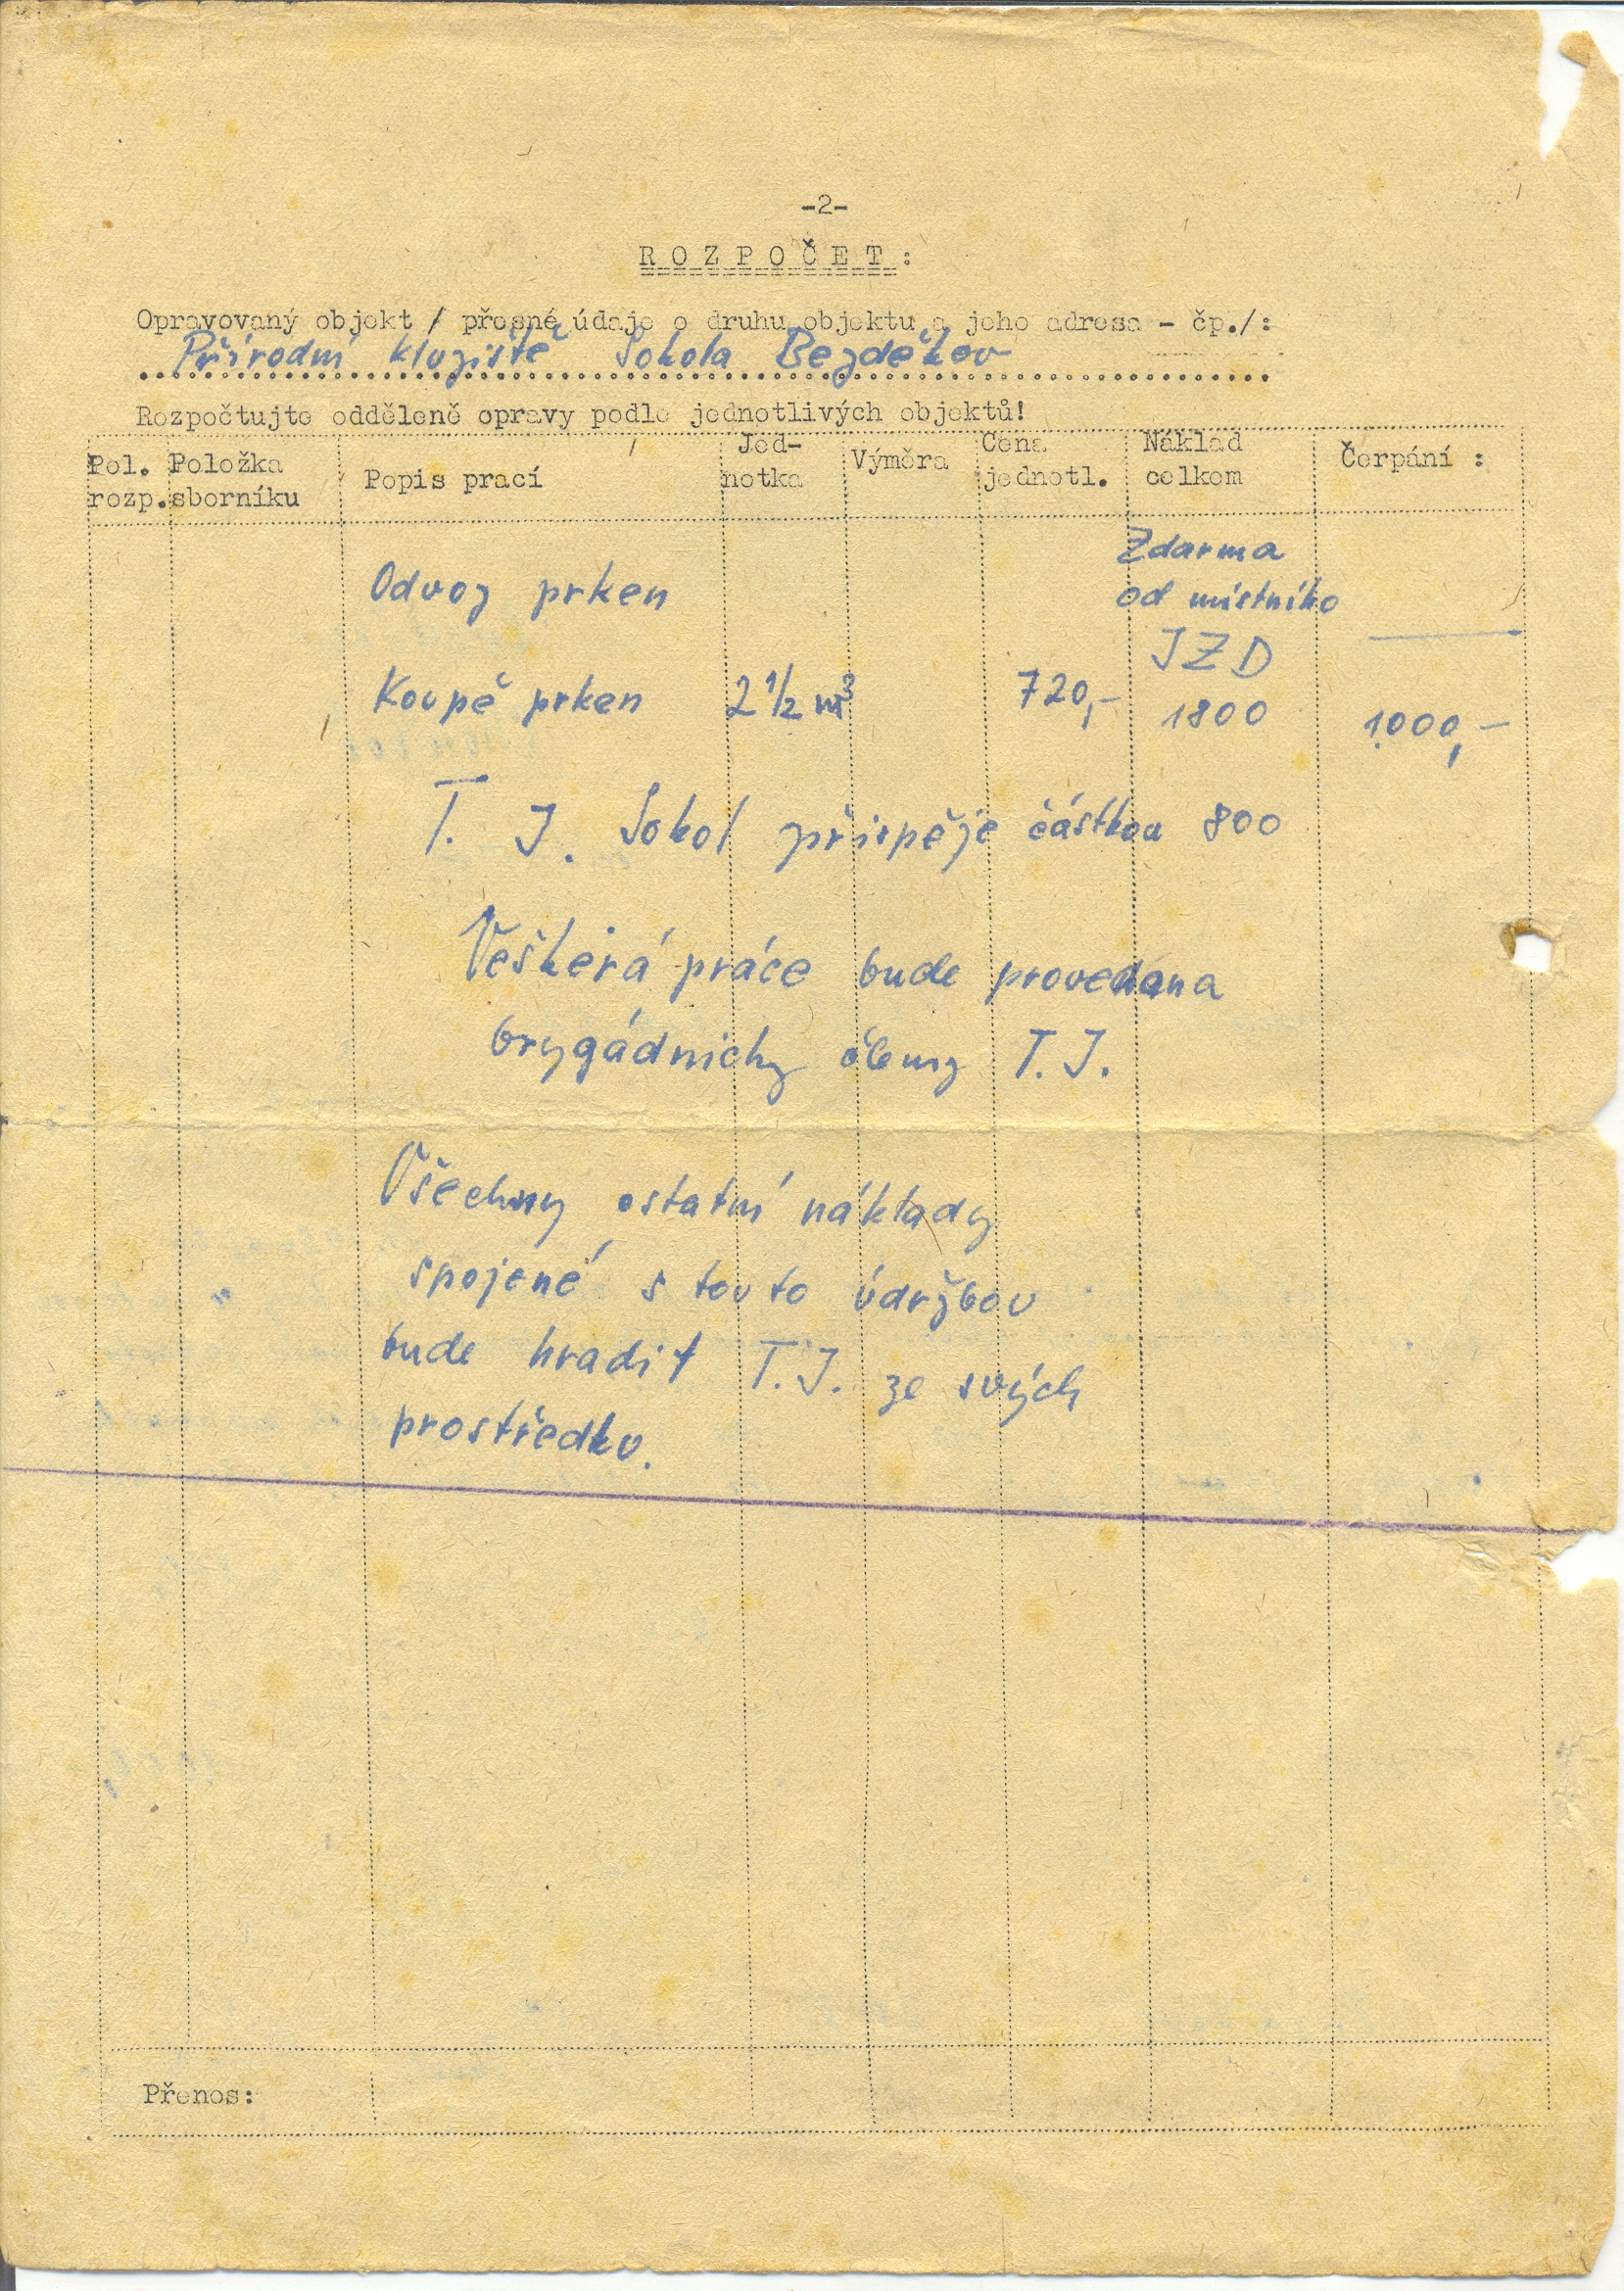 -2-
ROZPOČET:
Opravovaný objekt / přesné údaje o druhu objektu a jeho adresa - čp./:
Přírodní kluziště Sokola Bezděkov
Rozpočtujte odděleně opravy podle jednotlivých objektů!
Pol. rozp. Položka sborníku Popis prací Jed-notka Výměra Cena jednotl. Náklad celkem Čerpání :
Odvoz prken Zdarma
od místního
JZD
Koupě prken 2 1/2 m³ 720,- 1800 1.000,-
T. J. Sokol přispěje částkou 800
Veškerá práce bude provedana
brygádnicky členy T. J.
Všechny ostatní náklady
spojené s touto údržbou
bude hradit T. J. ze svých
prostředku.
Přenos: